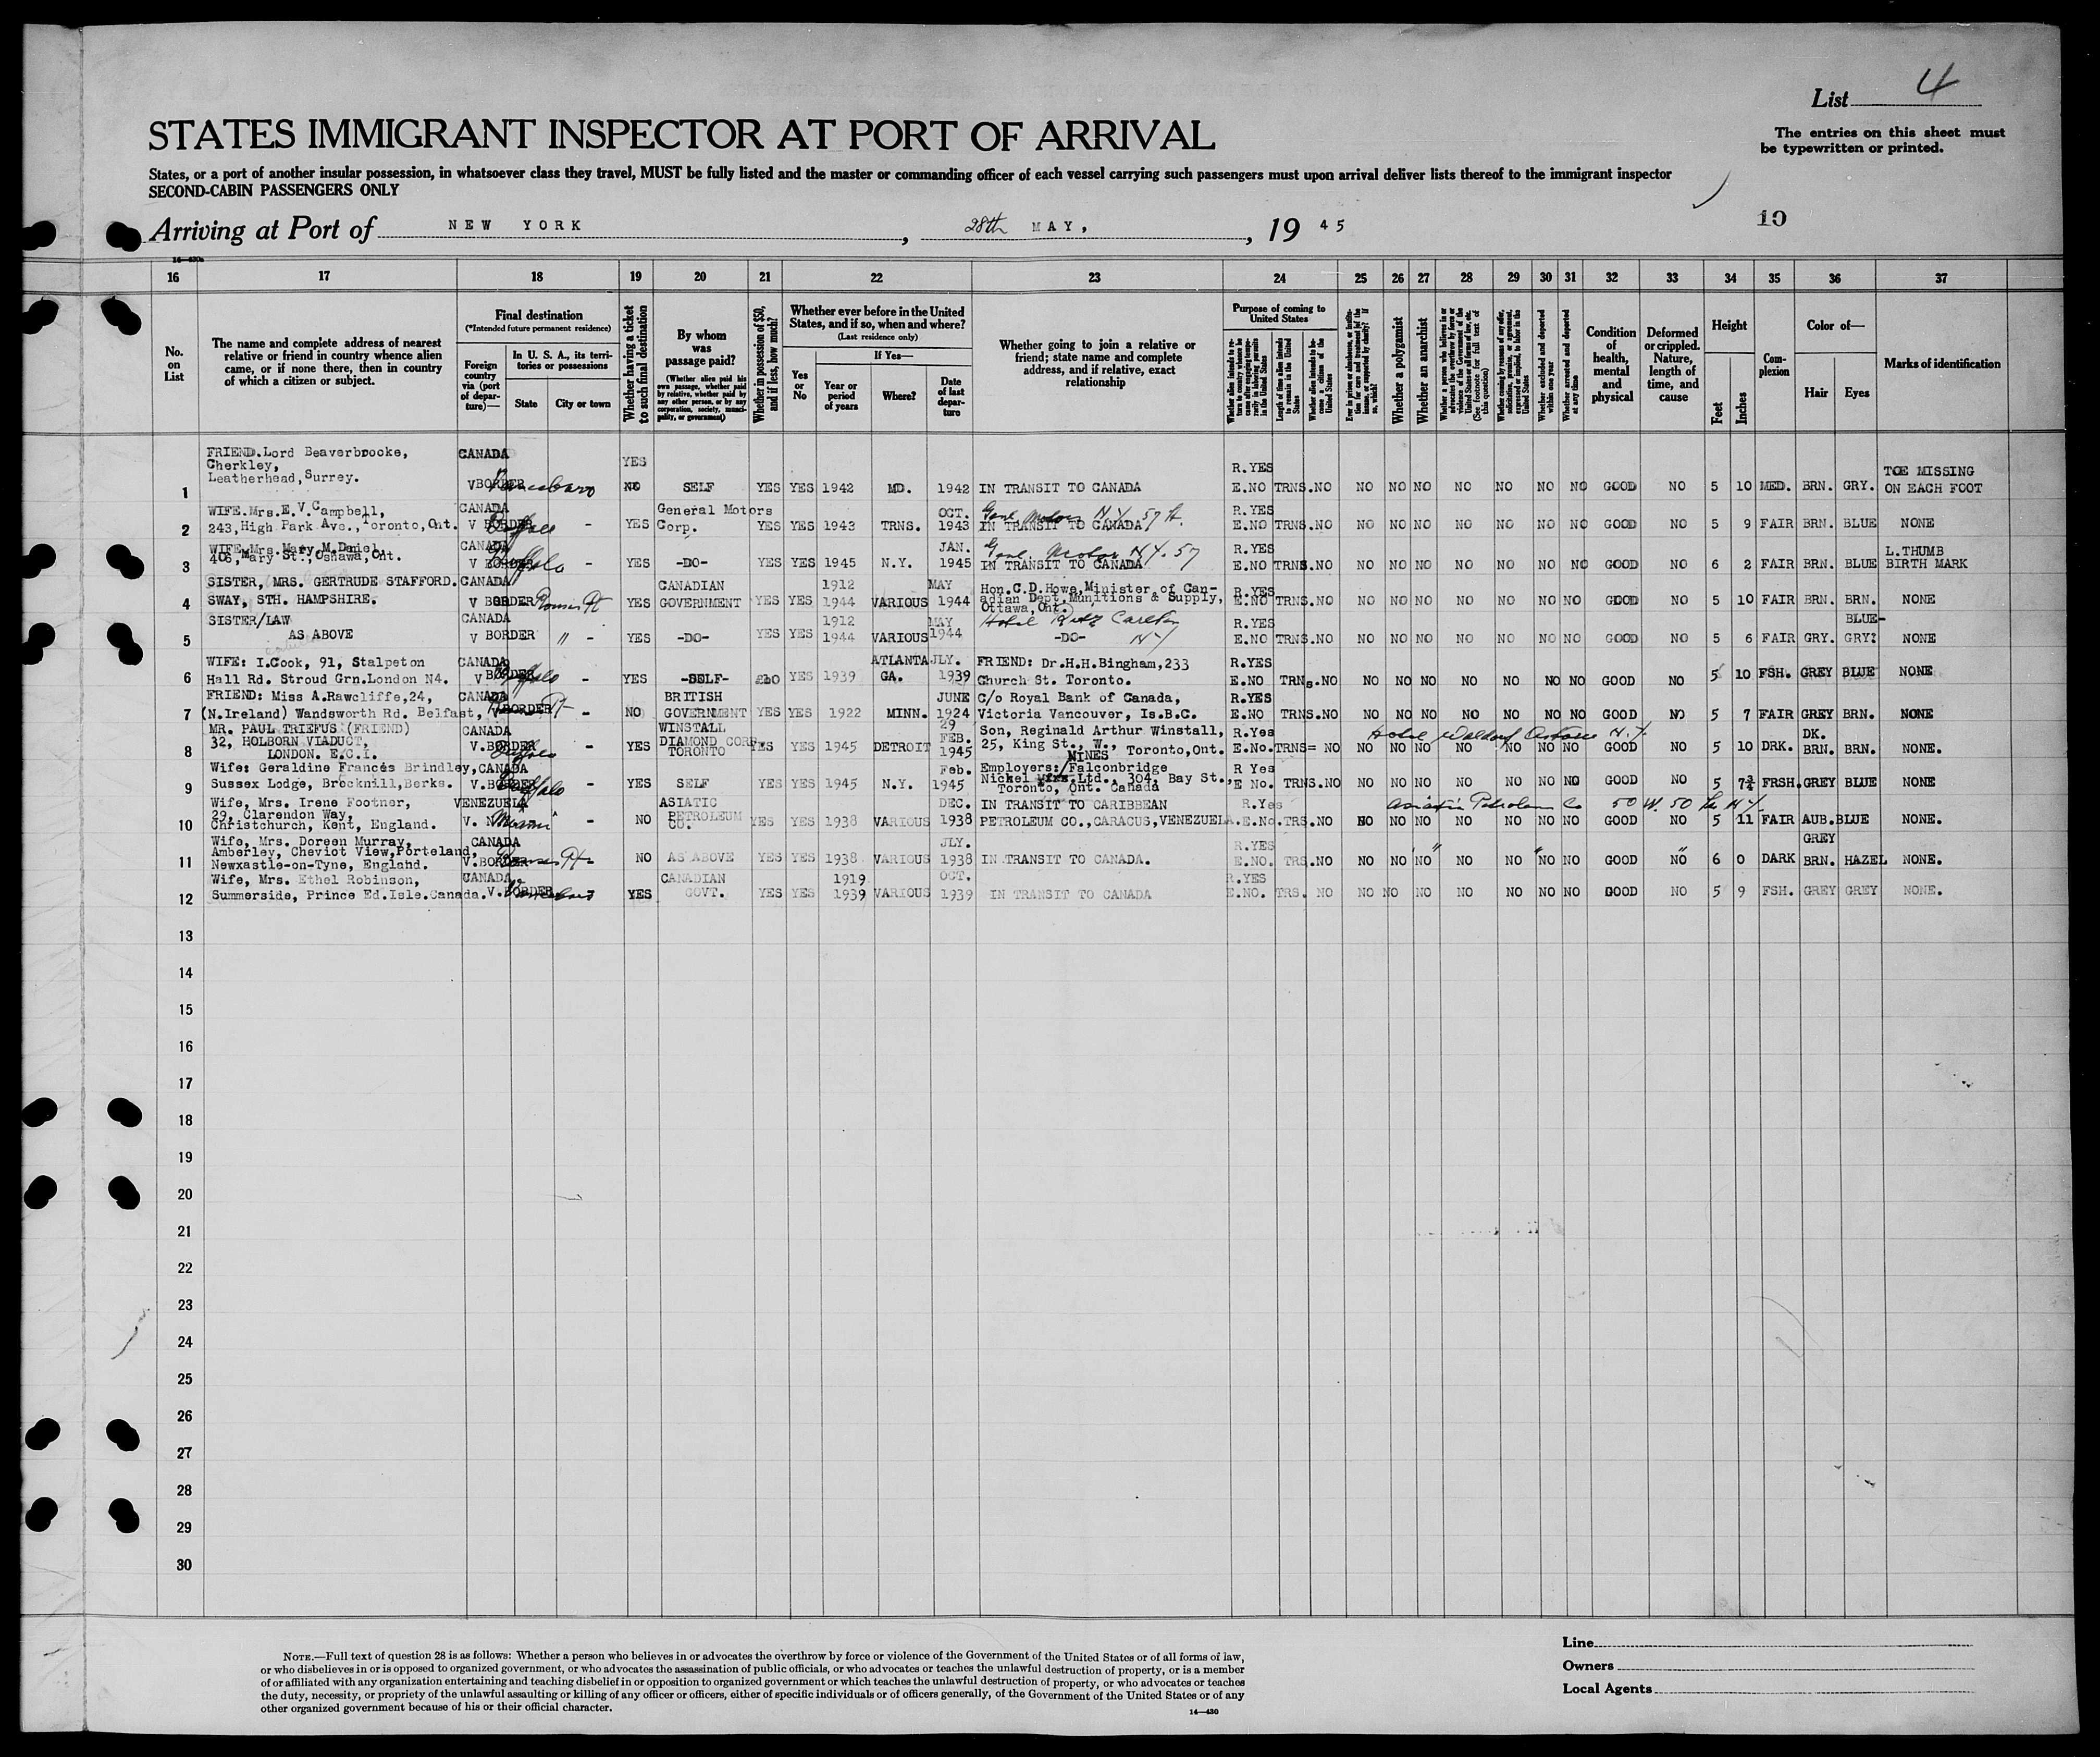 List 4
STATES IMMIGRANT INSPECTOR AT PORT OF ARRIVAL
The entries on this sheet must
be typewritten or printed.
States, or a port of another insular possession, in whatsoever class they travel, MUST be fully listed and the master or commanding officer of each vessel carrying such passengers must upon arrival deliver lists thereof to the immigrant inspector
SECOND-CABIN PASSENGERS ONLY
10
Arriving at Port of NEW YORK, 28th MAY, 1945
16 17 18 19 20 21 22 23 24 25 26 27 28 29 30 31 32 33 34 35 36 37
No. on List
The name and complete address of nearest relative or friend in country whence alien came, or if none there, then in country of which a citizen or subject.
Final destination
(*Intended future permanent residence)
Foreign country via (port of departure)—
In U. S. A., its territories or possessions
State
City or town
Whether having a ticket to such final destination
By whom was passage paid?
(Whether alien paid his own passage, whether paid by relative, whether paid by any other person, or by any corporation, society, municipality, or government)
Whether in possession of $50, and if less, how much?
Whether ever before in the United States, and if so, when and where?
(Last residence only)
Yes or No
If Yes—
Year or period of years
Where?
Date of last departure
Whether going to join a relative or friend; state name and complete address, and if relative, exact relationship
Purpose of coming to United States
Length of time alien intends to remain in the United States
Whether alien intends to become a citizen of the United States
Whether a polygamist
Whether an anarchist
Whether excluded and deported within one year
Whether arrested and deported at any time
Condition of health, mental and physical
Deformed or crippled. Nature, length of time, and cause
Height
Feet
Inches
Complexion
Color of—
Hair
Eyes
Marks of identification
FRIEND. Lord Beaverbrooke, CANADA
Cherkley, YES R.YES TOE MISSING
Leatherhead, Surrey.
1 V BORDER NO SELF YES YES 1942 MD. 1942 IN TRANSIT TO CANADA E.NO TRNS. NO NO NO NO NO NO NO NO GOOD NO 5 10 MED. BRN. GRY. ON EACH FOOT
WIFE. Mrs. E. V. Campbell, CANADA General Motors OCT. Genl Motors N.Y. 57 St. R.YES
2 243, High Park Ave., Toronto, Ont. V BORDER Buffalo - YES Corp. YES YES 1943 TRNS. 1943 IN TRANSIT TO CANADA E.NO TRNS. NO NO NO NO NO NO NO NO GOOD NO 5 9 FAIR BRN. BLUE NONE
WIFE. Mrs. Mary M. Daniel, CANADA JAN. Genl. Motor N.Y. 57 R.YES L.THUMB
3 406, Mary St., Oshawa, Ont. V BORDER Buffalo - YES -DO- YES YES 1945 N.Y. 1945 IN TRANSIT TO CANADA E.NO TRNS. NO NO NO NO NO NO NO NO GOOD NO 6 2 FAIR BRN. BLUE BIRTH MARK
SISTER, MRS. GERTRUDE STAFFORD. CANADA CANADIAN 1912 MAY Hon. C.D. Howe, Minister of Can-
4 SWAY, STH. HAMPSHIRE. V BORDER Rouses Pt YES GOVERNMENT YES YES 1944 VARIOUS 1944 adian Dept Munitions & Supply, R.YES E.NO TRNS. NO NO NO NO NO NO NO NO GOOD NO 5 10 FAIR BRN. BRN. NONE
Ottawa, Ont.
SISTER/LAW CANADA 1912 MAY Hotel Ritz Carlton R.YES BLUE-
5 AS ABOVE V BORDER " - YES -DO- YES YES 1944 VARIOUS 1944 -DO- N.Y. E.NO TRNS. NO NO NO NO NO NO NO NO GOOD NO 5 6 FAIR GRY. GRY? NONE
WIFE: I.Cook, 91, Stalpeton CANADA ATLANTA JLY. FRIEND: Dr.H.H.Bingham, 233 R.YES
6 Hall Rd. Stroud Grn. London N4. V BORDER Buffalo - YES -SELF- £10 YES 1939 GA. 1939 Church St. Toronto. E.NO TRNs. NO NO NO NO NO NO NO NO GOOD NO 5 10 FSH. GREY BLUE NONE
FRIEND: Miss A.Rawcliffe, 24, CANADA BRITISH JUNE C/o Royal Bank of Canada, R.YES
7 (N.Ireland) Wandsworth Rd. Belfast, V BORDER - NO GOVERNMENT YES YES 1922 MINN. 1924 Victoria Vancouver, Is.B.C. E.NO TRNS. NO NO NO NO NO NO NO NO GOOD NO 5 7 FAIR GREY BRN. NONE
MR. PAUL TRIEFUS (FRIEND) CANADA WINSTALL 29 FEB. Son, Reginald Arthur Winstall, R.Yes Hotel Waldorf Astoria N.Y. DK.
8 32, HOLBORN VIADUCT, V. BORDER Buffalo - YES DIAMOND CORP. YES YES 1945 DETROIT 1945 25, King St., W., Toronto, Ont. E.No. TRNS= NO NO NO NO NO NO NO NO GOOD NO 5 10 DRK. BRN. BRN. NONE.
LONDON. E.C.I. TORONTO MINES
Wife: Geraldine Francés Brindley, CANADA Feb. Employers:/Falconbridge R Yes
9 Sussex Lodge, Brocknill, Berks. V. BORDER Buffalo - YES SELF YES YES 1945 N.Y. 1945 Nickel Ltd., 304, Bay St., E No. TRNS. NO NO NO NO NO NO NO NO GOOD NO 5 7¾ FRSH. GREY BLUE NONE
Toronto, Ont. Canada
Wife, Mrs. Irene Footner, VENEZUELA ASIATIC DEC. IN TRANSIT TO CARIBBEAN R.Yes Asiatic Petroleum Co 50 W. 50 St N.Y.
29, Clarendon Way,
10 Christchurch, Kent, England. V. Miami - NO PETROLEUM CO. YES YES 1938 VARIOUS 1938 PETROLEUM CO., CARACUS, VENEZUELA. E.No. TRS. NO NO NO NO NO NO NO NO GOOD NO 5 11 FAIR AUB. BLUE NONE.
Wife, Mrs. Doreen Murray, CANADA JLY. R.YES GREY
Amberley, Cheviot View, Porteland,
11 Newxastle-on-Tyne, Englahd. V. BORDER Rouses Pt - NO AS ABOVE YES YES 1938 VARIOUS 1938 IN TRANSIT TO CANADA. E.NO. TRS. NO NO NO NO NO NO NO NO GOOD NO 6 0 DARK BRN. HAZEL NONE.
Wife, Mrs. Ethel Robinson, CANADA. CANADIAN 1919 OCT. R.YES
12 Summerside, Prince Ed.Isle.Canada. V. BORDER - YES GOVT. YES YES 1939 VARIOUS 1939 IN TRANSIT TO CANADA E.NO. TRS. NO NO NO NO NO NO NO NO GOOD NO 5 9 FSH. GREY GREY NONE.
13
14
15
16
17
18
19
20
21
22
23
24
25
26
27
28
29
30
NOTE.—Full text of question 28 is as follows: Whether a person who believes in or advocates the overthrow by force or violence of the Government of the United States or of all forms of law,
or who disbelieves in or is opposed to organized government, or who advocates the assassination of public officials, or who advocates or teaches the unlawful destruction of property, or is a member
of or affiliated with any organization entertaining and teaching disbelief in or opposition to organized government or which teaches the unlawful destruction of property, or who advocates or teaches
the duty, necessity, or propriety of the unlawful assaulting or killing of any officer or officers, either of specific individuals or of officers generally, of the Government of the United States or of any
other organized government because of his or their official character.
14—430
Line
Owners
Local Agents